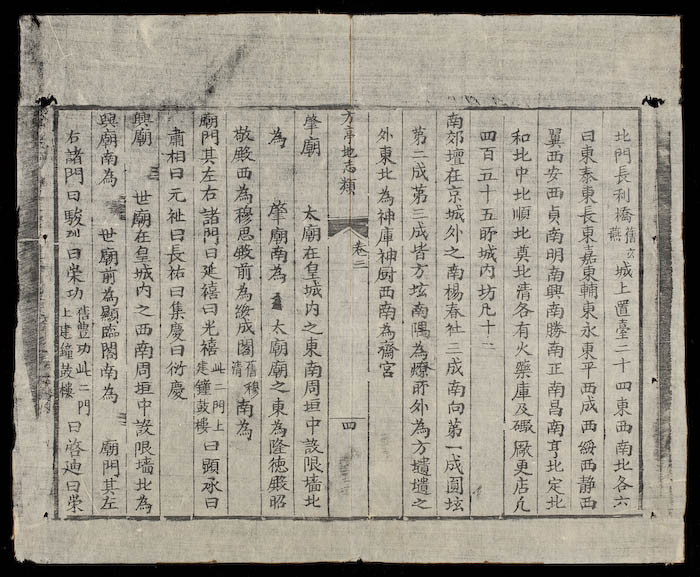 北門長利橋舊燕城上置臺二十四東西南北各六
曰東泰東長東嘉東輔東永東平西成西綏西静西
翼西安西貞南明南興南勝南正南昌南亨北定北
和北中北順北奠北清各有火藥庫及礮厰更店凡
四百五十五所城内坊凡十二
南郊壇在京城外之南楊春社三成南向第一成圓坛
第二成第三成皆方坛南隅為燎所外為方壝壝之
外東北為神庫神厨西南為齋宫
方亭地志類 卷二 四
肇廟 太廟在皇城内之東南周垣中設限墻北
為 肇廟南為 太廟廟之東為隆德殿昭
敬殿西為穆思殿前為綏成閣舊穆清南為
廟門其左右諸門曰延禧曰光禧此二門上建鐘鼓樓曰顯承曰
肅相曰元祉曰長祐曰集慶曰衍慶
興廟 世廟在皇城内之西南周垣中設限墻北為
興廟南為 世廟前為顯臨閣南為 廟門其左
右諸門曰駿烈曰崇功舊豊功此二門上建鐘鼓樓曰啓迪曰崇